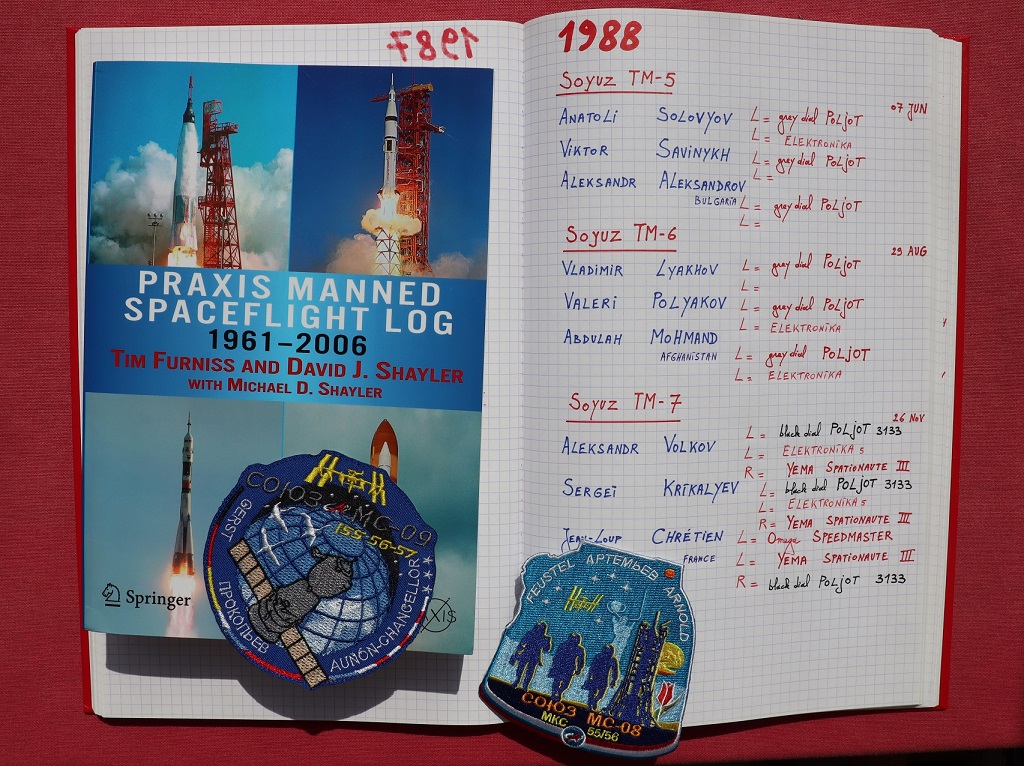 1987
PRAXIS MANNED
SPACEFLIGHT LOG
1961–2006
TIM FURNISS AND DAVID J. SHAYLER
WITH MICHAEL D. SHAYLER
Springer
AXIS
СОЮЗ МС-09
155-56-57
GERST
ПРОКОПЬЕВ
AUÑÓN-CHANCELLOR
1988
SOYUZ TM-5
07 JUN
ANATOLI SOLOVYOV L = grey dial POLJOT
L = ELEKTRONIKA
VIKTOR SAVINYKH L = grey dial POLJOT
L =
ALEKSANDR ALEKSANDROV
BULGARIA L = grey dial POLJOT
L =
SOYUZ TM-6
29 AUG
VLADIMIR LYAKHOV L = grey dial POLJOT
L =
VALERI POLYAKOV L = grey dial POLJOT
L = ELEKTRONIKA
ABDULAH MOHMAND
AFGHANISTAN L = grey dial POLJOT
L = ELEKTRONIKA
SOYUZ TM-7
26 NOV
ALEKSANDR VOLKOV L = black dial POLJOT 3133
L = ELEKTRONIKA 5
R = YEMA SPATIONAUTE III
SERGEÏ KRIKALYEV L = black dial POLJOT 3133
L = ELEKTRONIKA 5
R = YEMA SPATIONAUTE III
JEAN-LOUP CHRÉTIEN L = Omega SPEEDMASTER
FRANCE L = YEMA SPATIONAUTE III
R = black dial POLJOT 3133
FEUSTEL АРТЕМЬЕВ ARNOLD
СОЮЗ МС-08
МКС 55/56